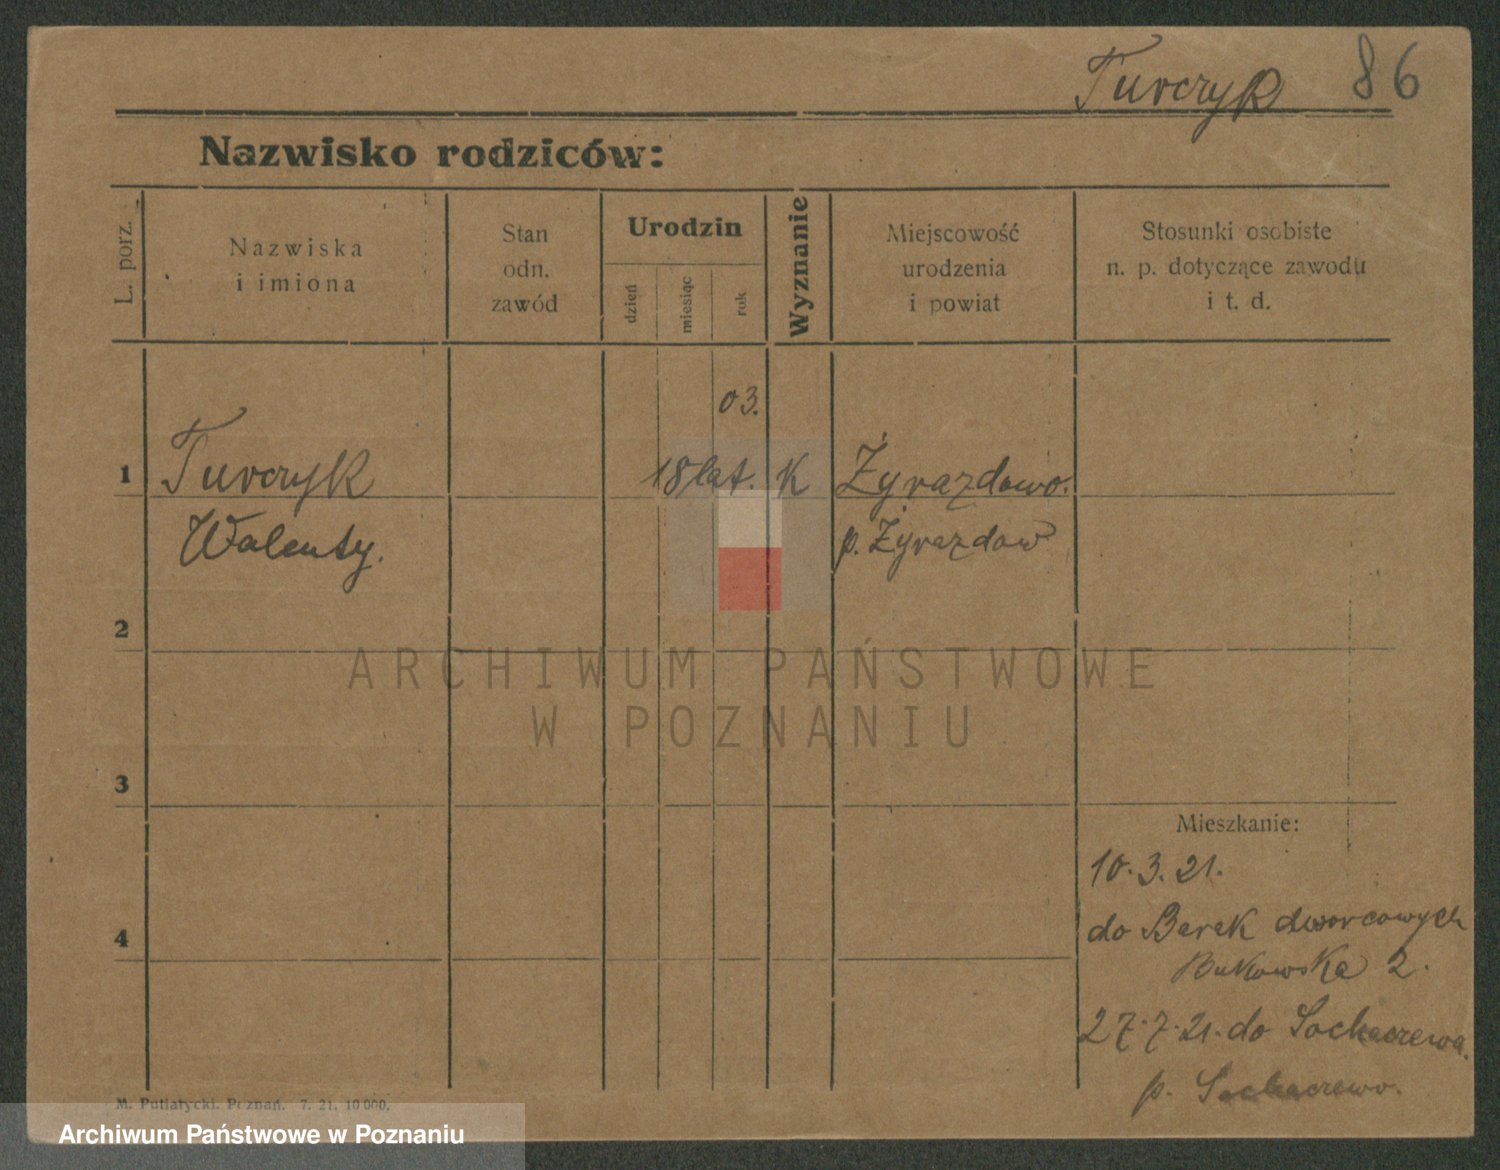 Turczyk 86
Nazwisko rodziców:
L. porz.
Nazwiska
i imiona
Stan
odn.
zawód
Urodzin
dzień
miesiąc
rok
Wyznanie
Miejscowość
urodzenia
i powiat
Stosunki osobiste
n. p. dotyczące zawodu
i t. d.
03.
1 Turczyk 18 lat. K Żyrazdowo.
Walenty. p. Żyrazdow
2
ARCHIWUM PAŃSTWOWE
W POZNANIU
3
Mieszkanie:
10.3.21.
4 do Barak dworcowych
Bukowska 2.
27.7.21. do Sochaczewa.
p. Sochaczewo.
M. Putiatycki. Poznań. 7. 21. 10 000.
Archiwum Państwowe w Poznaniu